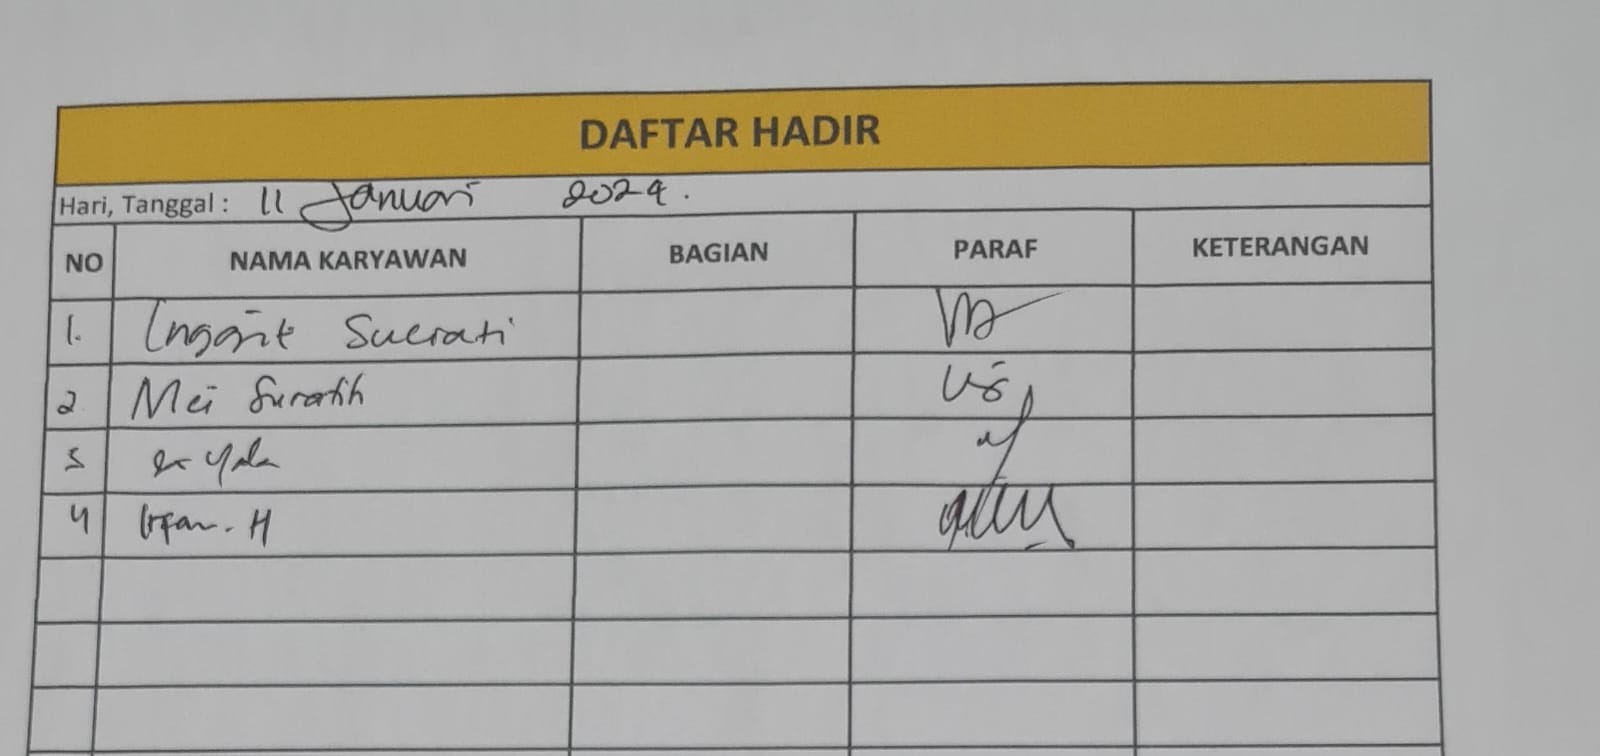 DAFTAR HADIR
Hari, Tanggal : 11 Januari 2024.
NO NAMA KARYAWAN BAGIAN PARAF KETERANGAN
1. Inggrit Sucrati
2. Mei Suratih
3
4 Irfan. H